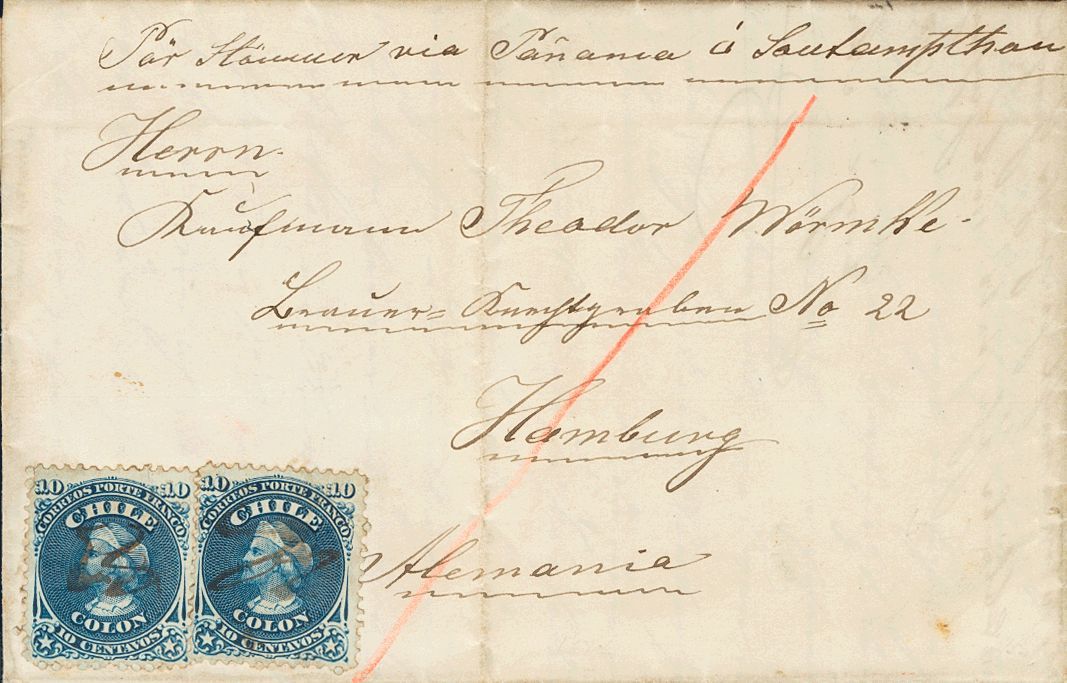 Pär Stömmer via Pañama ó Soutampthon
Herrn
Kaufmann Theodor Wörmke.
Brauer= Knechtgraben No 22
Hamburg
Alemania
10 10
CORREOS PORTE FRANCO
CHILE
COLON
10 CENTAVOS
10 10
CORREOS PORTE FRANCO
CHILE
COLON
10 CENTAVOS